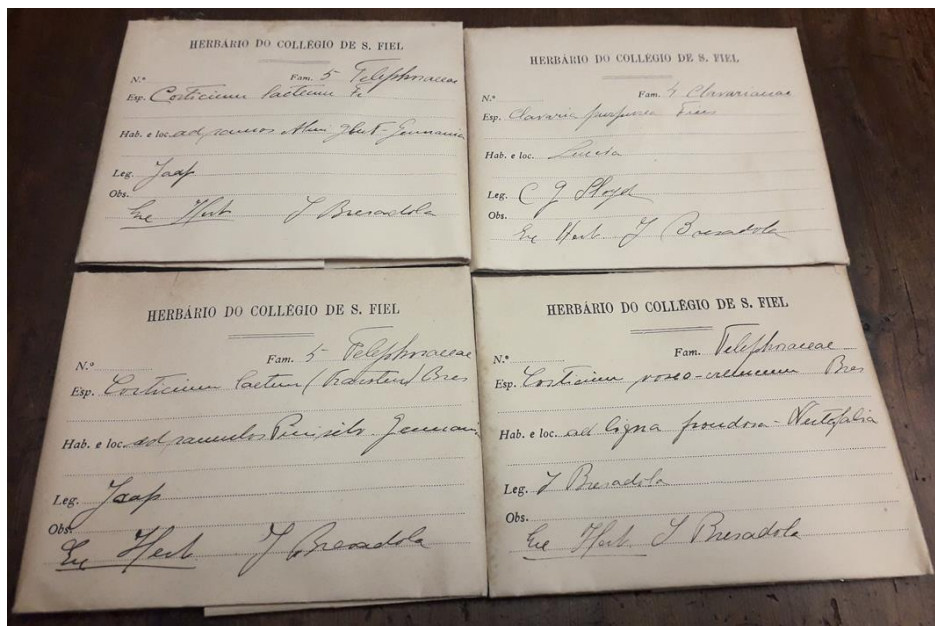 HERBÁRIO DO COLLÉGIO DE S. FIEL
N.º Fam. 5 Telephoraceae
Esp. Corticium laetum Fr
Hab. e loc. ad ramos Alni glut - Germania
Leg. Jaap
Obs.
Ex Herb J Bresadola
HERBÁRIO DO COLLÉGIO DE S. FIEL
N.º Fam. 4 Clavariaceae
Esp. Clavaria purpurea Fries
Hab. e loc. Suecia
Leg. C G Lloyd
Obs.
Ex Herb J Bresadola
HERBÁRIO DO COLLÉGIO DE S. FIEL
N.º Fam. 5 Telephoraceae
Esp. Corticium laetum (Karsten) Bres
Hab. e loc. ad ramulos Pini silv. Germania
Leg. Jaap
Obs.
Ex Herb J Bresadola
HERBÁRIO DO COLLÉGIO DE S. FIEL
N.º Fam. Telephoraceae
Esp. Corticium roseo-cremeum Bres
Hab. e loc. ad ligna frondosa - Westfalia
Leg. J Bresadola
Obs.
Ex Herb J Bresadola